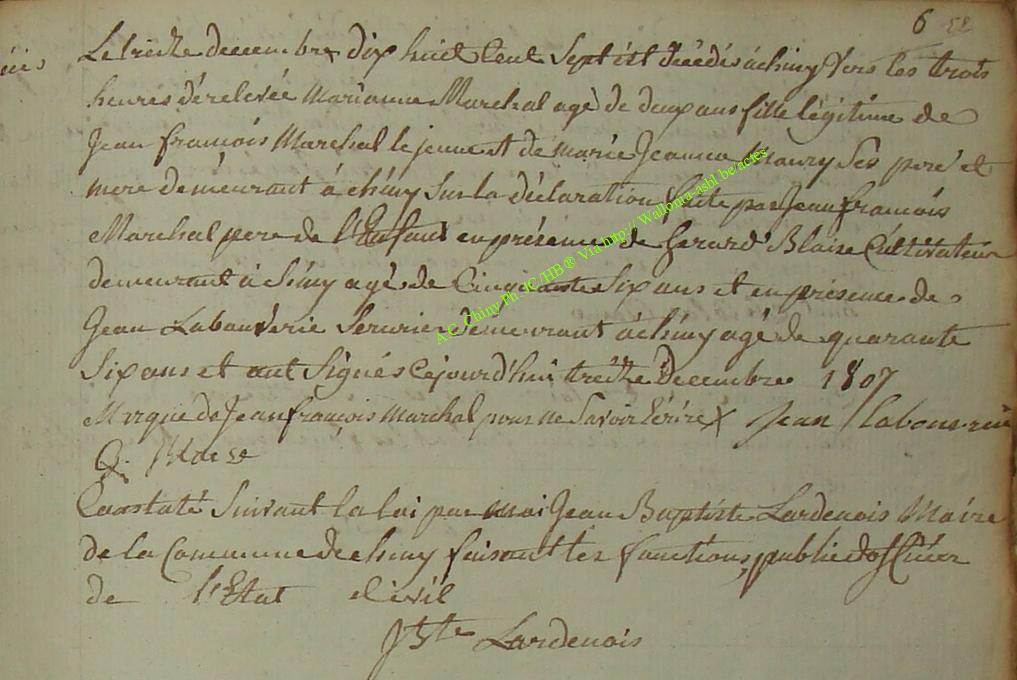 6 52
Le treitze decembre dix huit Cent Sept est décédés à chiny Vers les trois
heures dérelevée Marianne Marchal agé de deux ans fille légitime de
Jean françois Marchal le jeune et de marie Jeanne Maury Ses peré et
mere demeurant à chiny Sur la déclaration faite par Jean françois
Marchal pere de l'Enfant en présence de Gerard Blaise Cultivateur
demeurant à Chiny agé de Cinquante Six ans et en présence de
Jean Labouverie Serurier demeurant à chiny agé de quarante
Six ans et ont Signés Cejourd'hui treitze Decembre 1807
Marque de Jean françois Marchal pour ne Savoir Ecrire X Jean labouverie
G. Blaise
Constaté Suivant la loi par moi Jean Baptiste Lardenois Maire
de la Commune de chiny faisant les fonctions public d'officier
de l'Etat Civil
JBte Lardenois
A.C. Chiny Ph. JC/HB ® Via http://Wallonia-asbl.be/actes